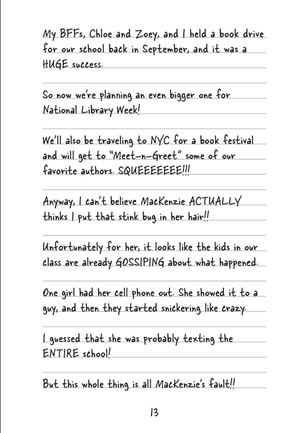 My BFFs, Chloe and Zoey, and I held a book drive
for our school back in September, and it was a
HUGE success.
So now we're planning an even bigger one for
National Library Week!
We'll also be traveling to NYC for a book festival
and will get to "Meet-n-Greet" some of our
favorite authors. SQUEEEEEEE!!!
Anyway, I can't believe MacKenzie ACTUALLY
thinks I put that stink bug in her hair!!
Unfortunately for her, it looks like the kids in our
class are already GOSSIPING about what happened.
One girl had her cell phone out. She showed it to a
guy, and then they started snickering like crazy.
I guessed that she was probably texting the
ENTIRE school!
But this whole thing is all MacKenzie's fault!!
13